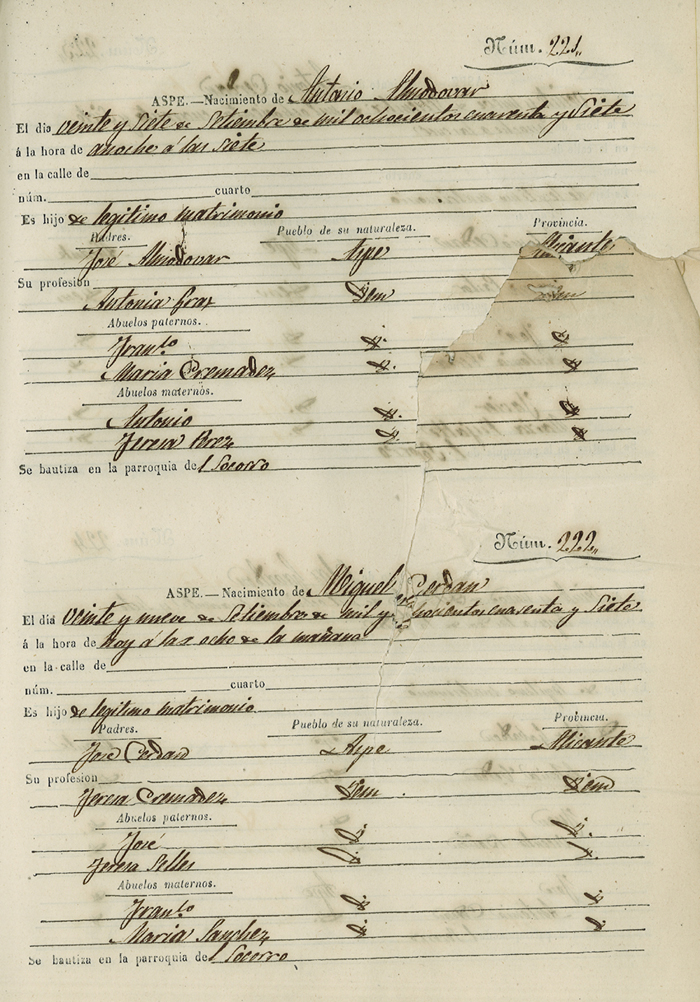 Núm. 221,,
ASPE.—Nacimiento de Antonio Almodovar
El dia veinte y siete de Setiembre de mil ochocientos cuarenta y siete
á la hora de anoche á las siete
en la calle de
núm. cuarto
Es hijo de legitimo matrimonio
Padres. Pueblo de su naturaleza. Provincia.
José Almodovar Aspe Alicante
Su profesion
Antonia Idem Idem
Abuelos paternos.
Fran.co d. d.
Maria Cremadez d. d.
Abuelos maternos.
Antonio d. d.
Teresa Perez d. d.
Se bautiza en la parroquia del Socorro
Núm. 222,,
ASPE.—Nacimiento de Miguel Cerdan
El dia veinte y nueve de Setiembre de mil y ochocientos cuarenta y siete
á la hora de hoy á las ocho de la mañana
en la calle de
núm. cuarto
Es hijo de legitimo matrimonio
Padres. Pueblo de su naturaleza. Provincia.
José Cerdan Aspe Alicante
Su profesion
Teresa Cremadez Idem Idem
Abuelos paternos.
José d. d.
Teresa Selles d. d.
Abuelos maternos.
Fran.co d. d.
Maria Sanchez d. d.
Se bautiza en la parroquia del Socorro